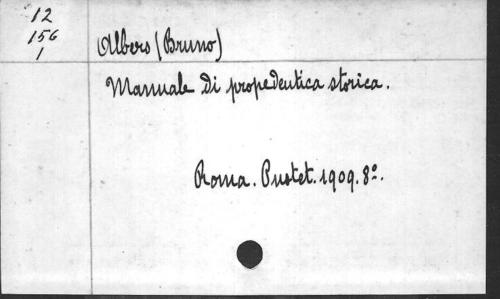 12
156
1
Albers (Bruno)
Manuale di propedeutica storica.
Roma. Pustet. 1909. 8º.